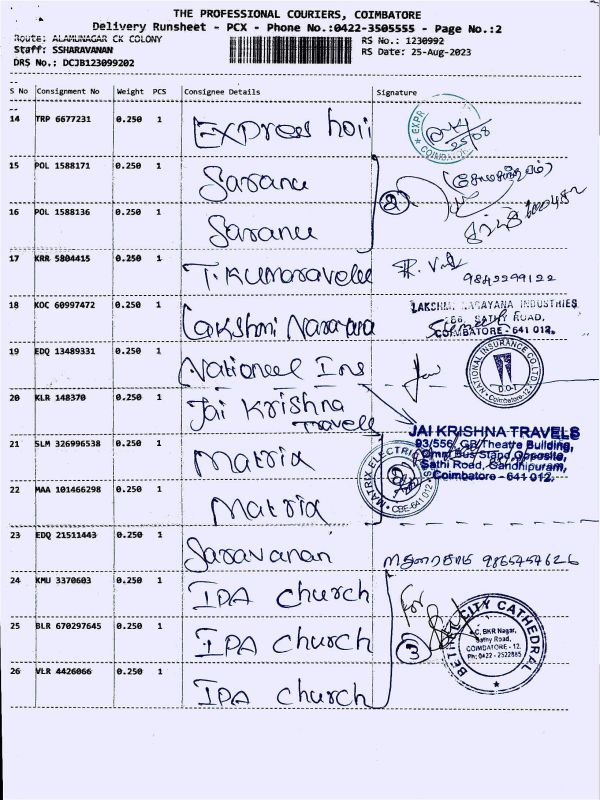 THE PROFESSIONAL COURIERS, COIMBATORE
Delivery Runsheet - PCX - Phone No.:0422-3505555 - Page No.:2
Route: ALAMUNAGAR CK COLONY
RS No.: 1230992
Staff: SSHARAVANAN
RS Date: 25-Aug-2023
DRS No.: DCJB123099202
S No Consignment No Weight PCS Consignee Details Signature
14 TRP 6677231 0.250 1 Express
25/08
15 POL 1588171 0.250 1 Saranu
16 POL 1588136 0.250 1 Saranu
2
17 KRR 5804415 0.250 1 T. Kumaravelu
9842299122
18 KOC 60997472 0.250 1 Lakshmi Narayana
LAKSHMI NARAYANA INDUSTRIES
SATHY ROAD,
COIMBATORE - 641 012.
19 EDQ 13489331 0.250 1 National Ins
NATIONAL INSURANCE CO.LTD
D.O-1
Coimbatore
20 KLR 148370 0.250 1 Jai Krishna
Travels
JAI KRISHNA TRAVELS
93/556, GB Theatre Building,
Omni Bus Stand Opposite,
Sathi Road, Gandhipuram,
Coimbatore - 641 012.
21 SLM 326996538 0.250 1 Matrix
MATRIX ELECTRIC
CBE-641 012
22 MAA 101466298 0.250 1 Matrix
23 EDQ 21511443 0.250 1 Saravanan
9865454626
24 KMU 3370603 0.250 1 IPA church
For
25 BLR 670297645 0.250 1 IPA church
3
BETHEL CITY CATHEDRAL
BKR Nagar,
Sathy Road,
COIMBATORE - 12.
Ph: 0422 - 2522885
26 VLR 4426066 0.250 1 IPA church